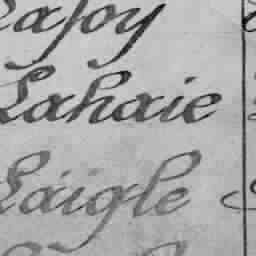 Lajoy
Lahaie
Laigle